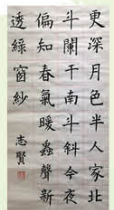 更深月色半人家北
斗闌干南斗斜今夜
偏知春氣暖蟲聲新
透綠窗紗
志賢